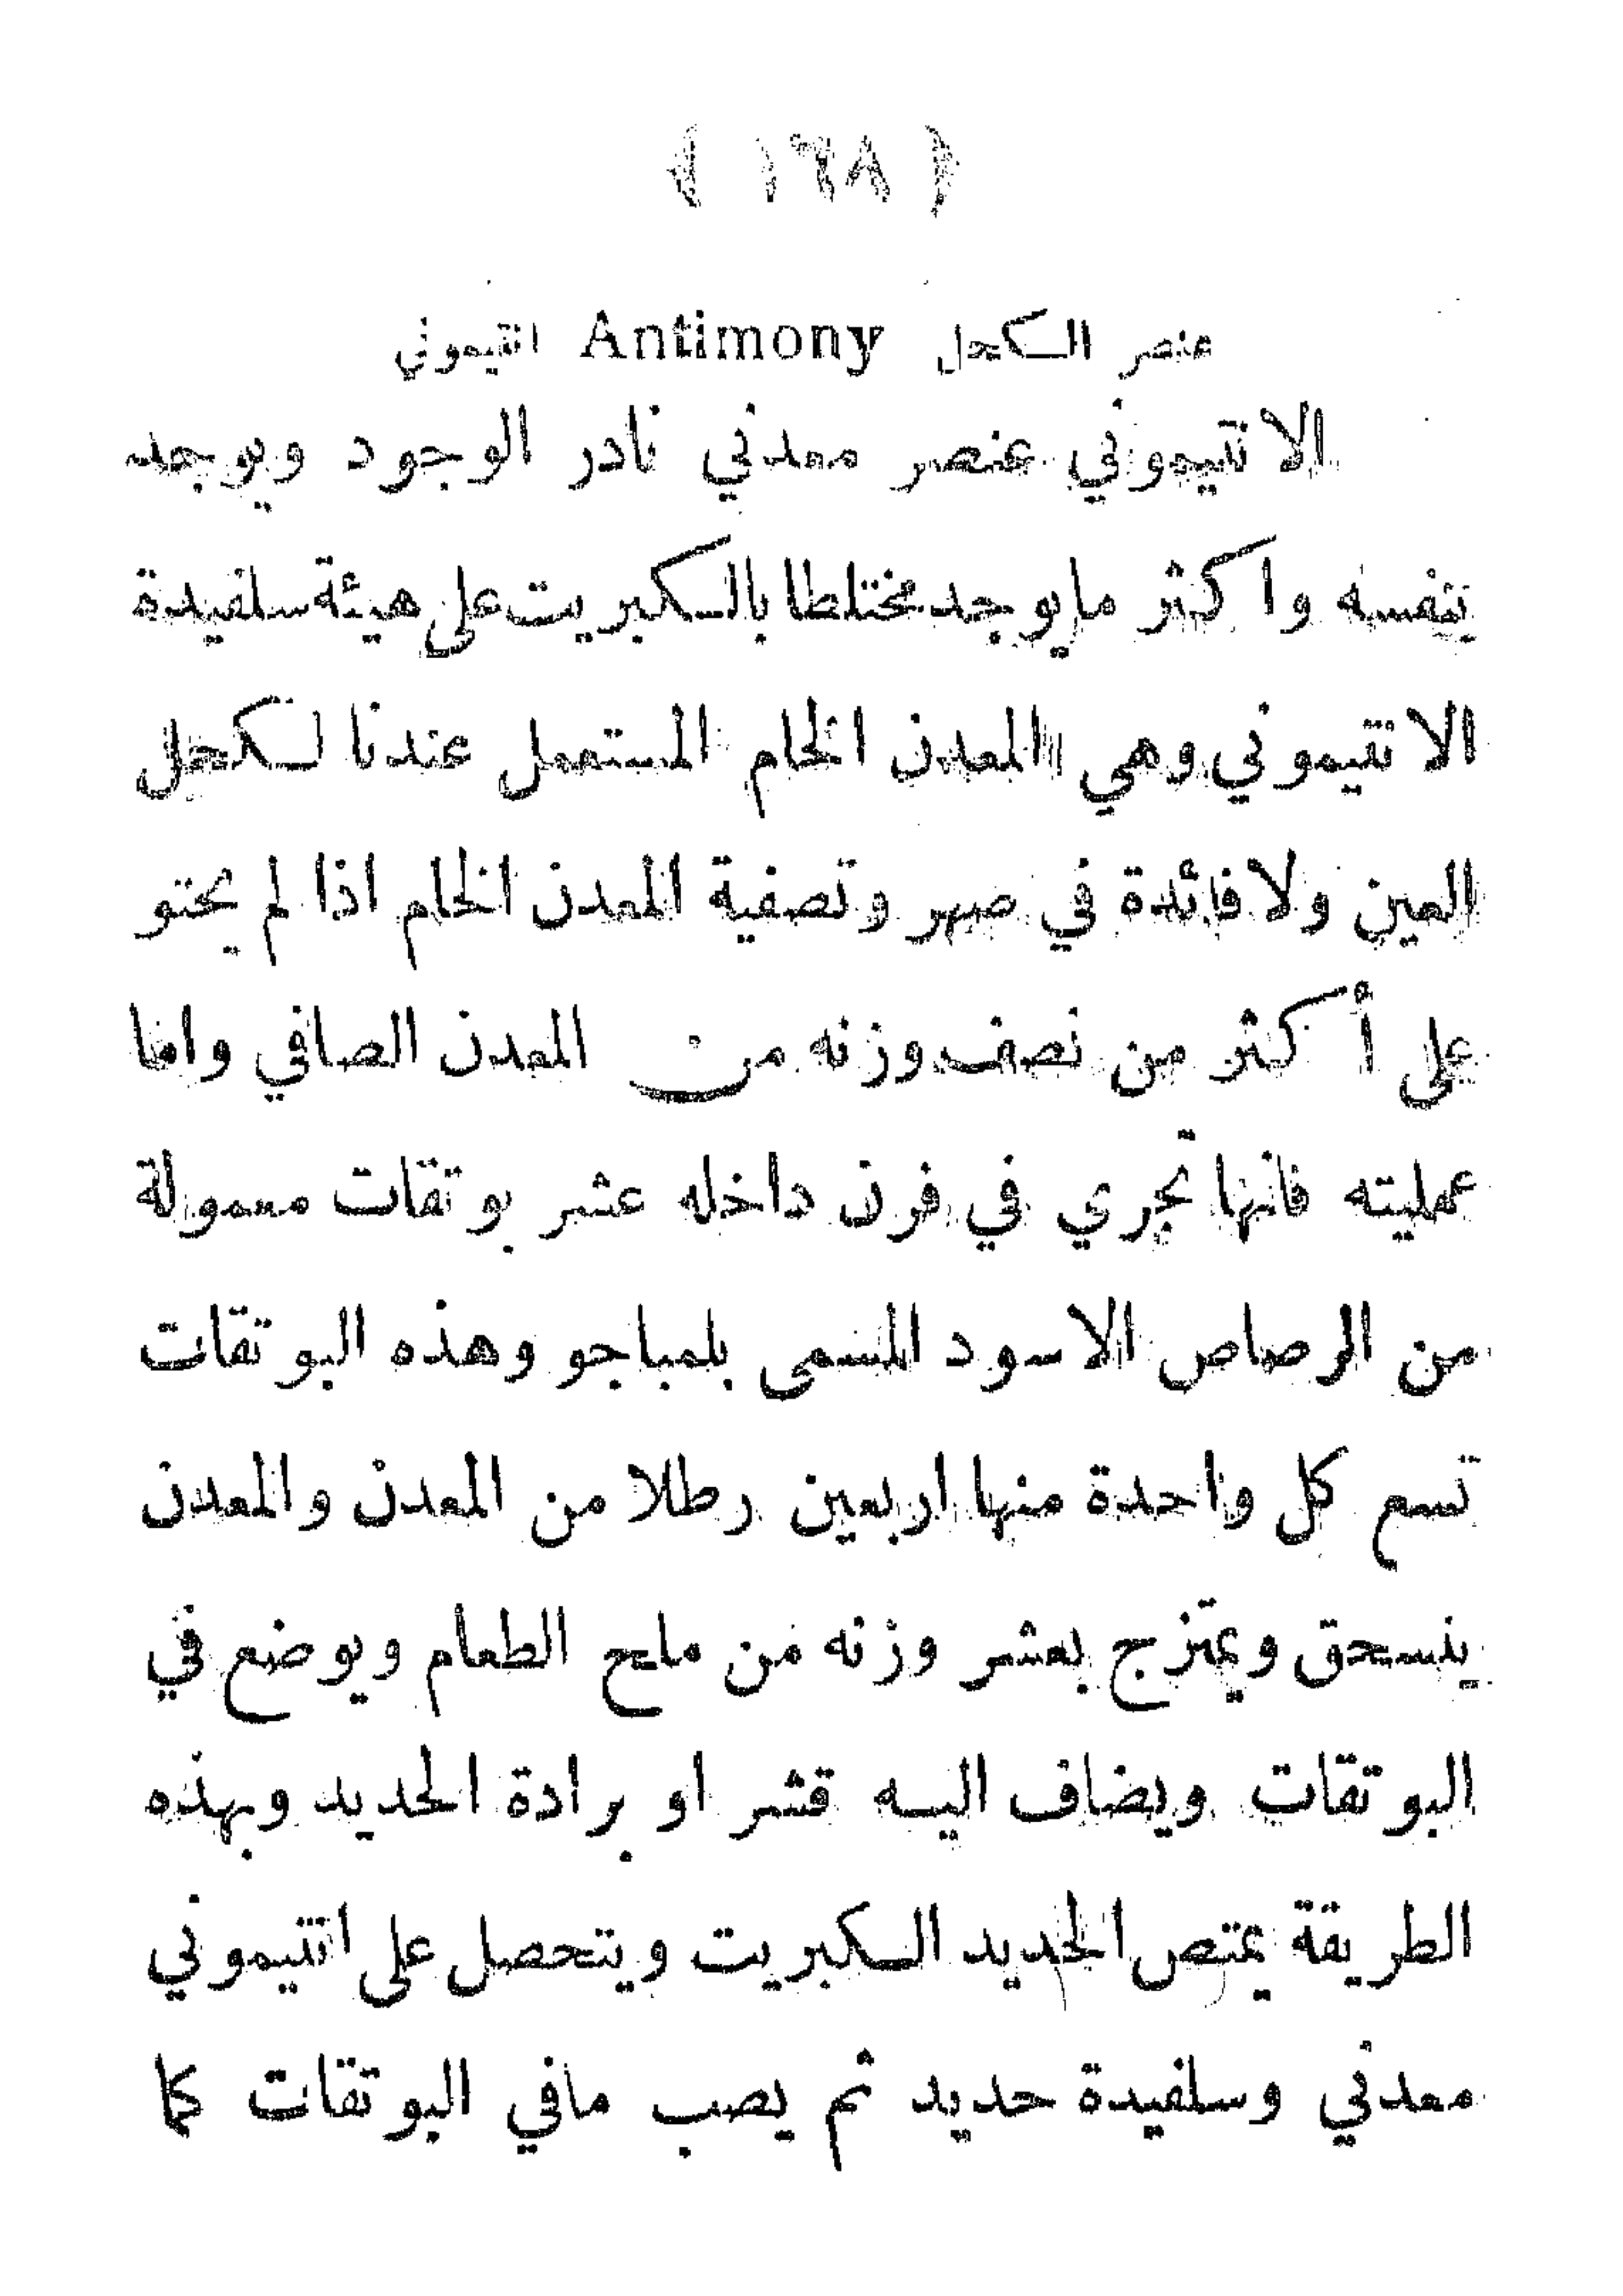 ( ١٦٨ )
عنصر الكحل Antimony انتيموني
الانتيموني عنصر معدني نادر الوجود ويوجد
بنفسه واكثر مايوجد مختلطا بالكبريت على هيئة سلفيدة
الانتيموني وهي المعدن الخام المستعمل عندنا لكحل
العين ولا فائدة في صهر وتصفية المعدن الخام اذا لم يحتو
على أكثر من نصف وزنه من المعدن الصافي واما
عمليته فانها تجري في فرن داخله عشر بوتقات معمولة
من الرصاص الاسود المسمى بلمباجو وهذه البوتقات
تسع كل واحدة منها اربعين رطلا من المعدن والمعدن
ينسحق ويمتزج بعشر وزنه من ملح الطعام ويوضع في
البوتقات ويضاف اليه قشر او برادة الحديد وبهذه
الطريقة يمتص الحديد الكبريت ويتحصل على انتيموني
معدني وسلفيدة حديد ثم يصب مافي البوتقات كما